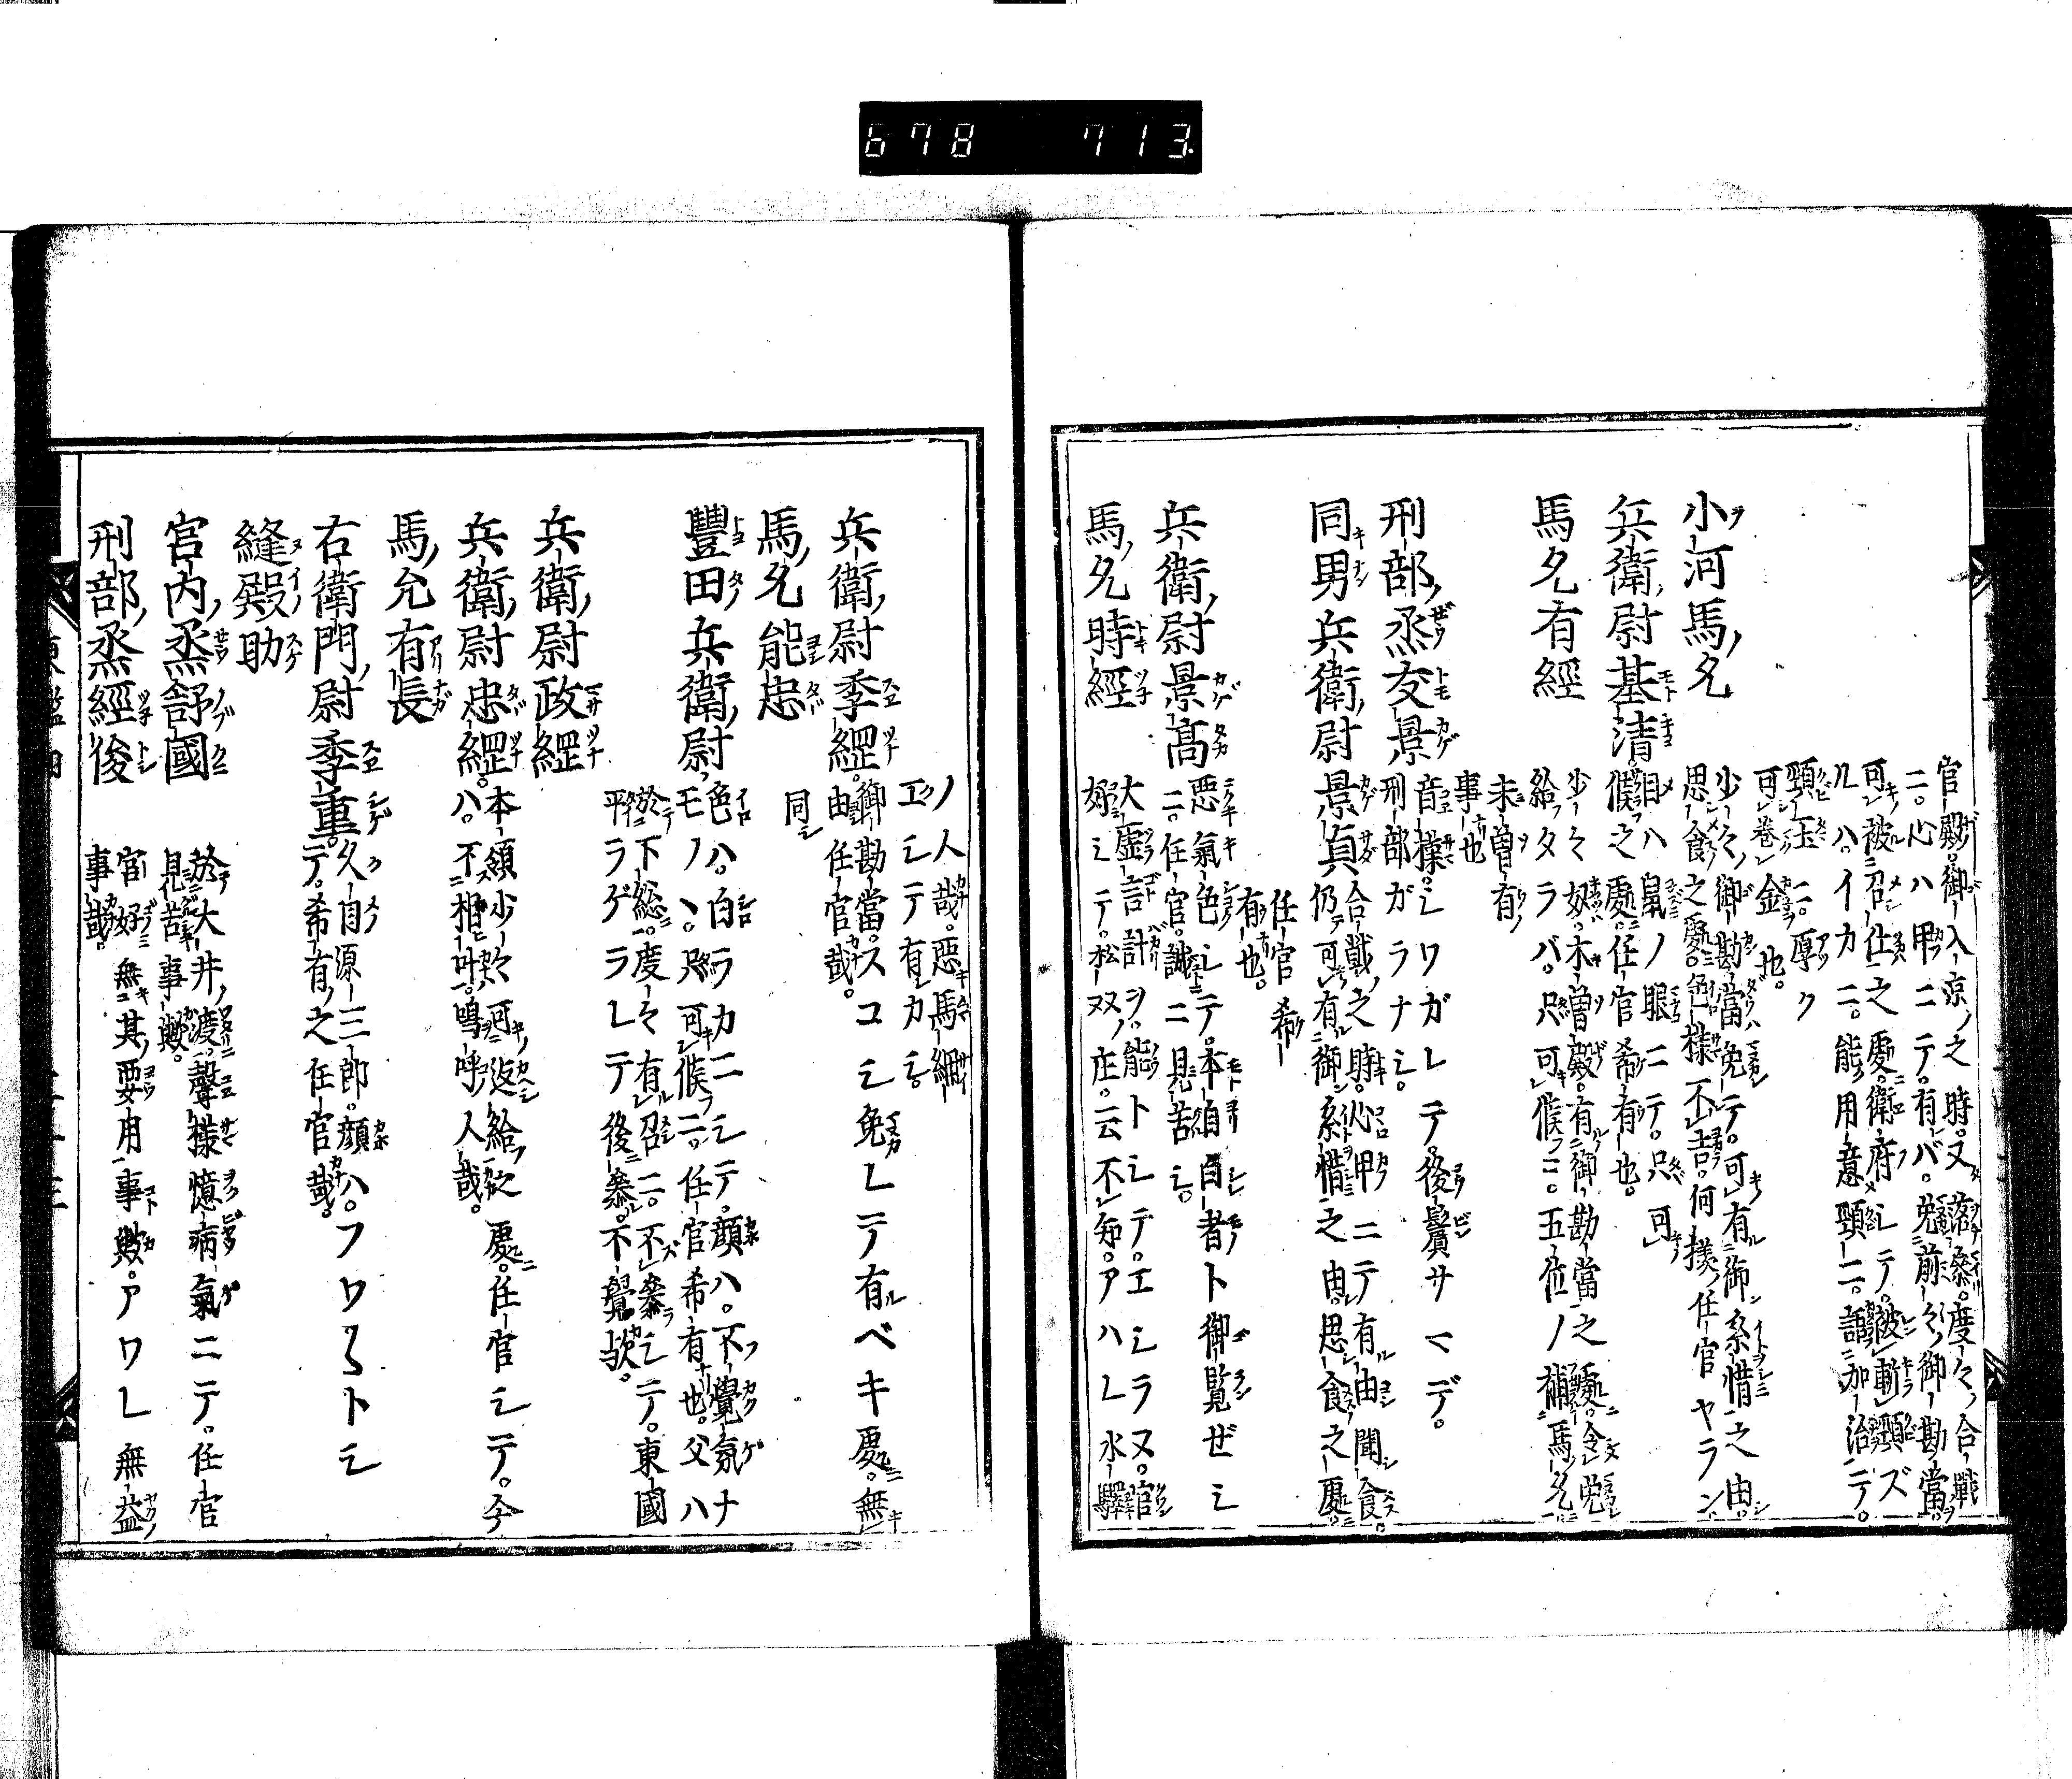 678 713
官殿。御入京ノ之時。又落參。度々ノ合戰
ニ。心ハ甲ニテ。有バ。免前々ノ御勘當。
可被召仕之處。衛府シテ。被斬頸ズ
ルハ。イカニ。能用意頸ニ。語加治ニテ。
頸玉ニ。厚ク
可卷金也。
小河馬ノ允
少々ノ御勘當免テ。可有御糸惜之由。
思食之處。色様不吉。何様ノ任官ヤラン
兵衛ノ尉基清
目ハ鼠ノ眼ニテ。只可
候之處。任官希有也。
馬允有經
少々奴。木曽殿。有御勘當之處。令免
給タラバ。只可候ニ。五位ノ補馬允
未曽有
事也
刑部ノ丞友景
音様。シワガレテ。後鬢サマデ。
刑部ガラナシ。
同男兵衛ノ尉景貞
合戰ノ之時。心甲ニテ有由聞食。
仍可有御糸惜之由。思食之處。
任官希
有也。
兵衛ノ尉景髙
悪氣色シテ。本自白者ト御覧ぜシ
ニ。任官。誠ニ見苦シ。
馬ノ允時經
大虚言計ヲ。能トシテ。エシラヌ。官
好シテ。松双ノ庄。云不知。アハレ水驛
ノ人哉。悪馬細
エシテ有カシ。
兵衛ノ尉季綱。
御勘當。スコシ免レテ有ベキ處。無
由任官哉。
馬ノ允能忠
同シ
豐田兵衛ノ尉
色ハ。白ラカニシテ。顔ハ。不覺氣ナ
モノヽ。只可候ニ。任官希有也。父ハ
於下総。度々有召ニ。不參シテ。東國
平ラゲラレテ後參。不覺歟。
兵衛ノ尉政綱
兵衛ノ尉忠綱。
本領少々可返給之處。任官シテ。今
ハ。不相叶。嗚呼人哉。
馬ノ允有長
右衛門ノ尉季重
久自源三郎。顔ハ。フワ〳〵トシ
テ。希有ノ之任官哉。
縫殿助
宮内ノ丞舒國
於大井ノ渡。聲様憶病氣ニテ。任官
見苦事歟。
刑部ノ丞經俊
官好。無其ノ要用事歟。アワレ無益
事哉。